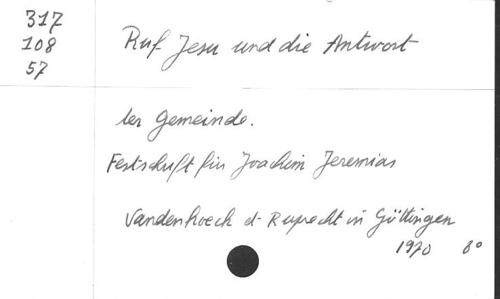 317
108
57
Ruf Jesu und die Antwort
der Gemeinde.
Festschrift für Joachim Jeremias
Vandenhoeck & Ruprecht in Göttingen
1970 8°